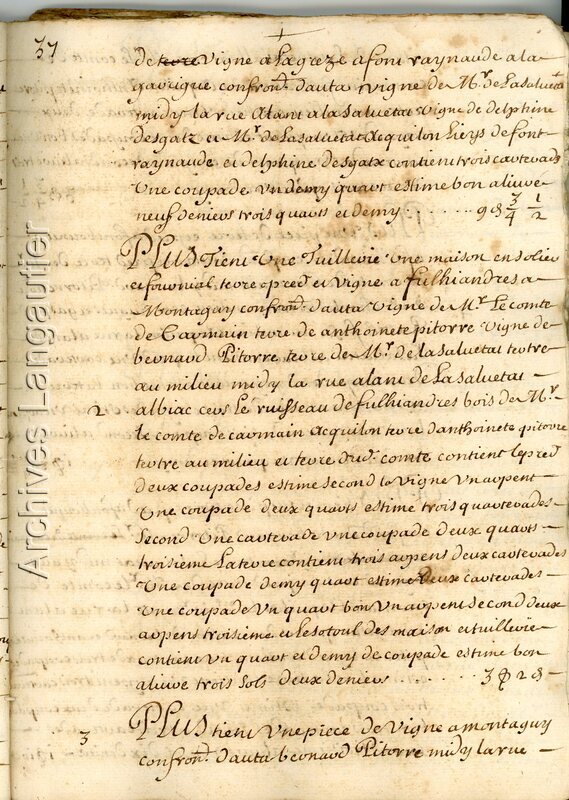 37
de terre vigne a Lagreze a font raynaude a la
garrigue confron.t d'auta vigne de M.r de Lasalueta
midy la rue alant a la Saluetat vigne de delphine
desgatz et M.r de Lasaluetat acquilon hers de font
raynaude et delphine desgatx contient trois carterads
Une coupade un demy quart estime bon aliure
neuf deniers trois quarts et demy ....... 9 d 3/4 1/2
PLUS Tient Une Tuillerie Une maison en solier
et fournial, terre &amp; pred et vigne a fulhiandres a
Montaguy confron.t d'auta Vigne de M.r Le comte
de Carmain terre de anthoinete pitorre vigne de
bernard Pitorre terre de M.r de la saluetat tertre
au milieu midy la rue alant de Lasaluetat —
2
albiac cers Le ruisseau de fulhiandres bois de M.r
le comte de carmain Acquilon terre d'anthoinete pitorre
tertre au milieu et terre dud. comte contient le pred
deux coupades estime second la vigne Un arpent —
Une coupade deux quarts estime trois quarterades —
Second Une carterade une coupade deux quarts —
troisieme La terre contient trois arpens deux carterades
Une coupade demy quart estime Deux carterades —
Une coupade Un quart bon Un arpent Second deux
arpens troisieme et Le sotoul des maison et tuillerie —
contient Un quart et demy de coupade estime bon
aliure trois sols deux deniers ........ 3 s 2 d —
3
PLUS tient Une piece de Vigne a montaguy
confron.t d'auta bernard Pitorre midy la rue —
Archives Langautier